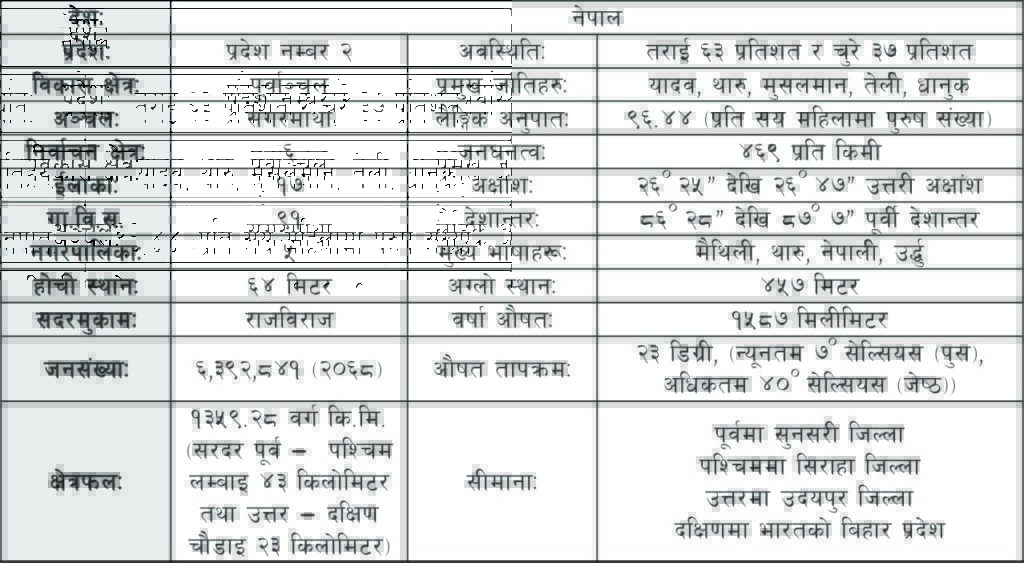 देश: नेपाल
प्रदेश: प्रदेश नम्बर २ अवस्थिति: तराई ६३ प्रतिशत र चुरे ३७ प्रतिशत
विकास क्षेत्र: पूर्वाञ्चल प्रमुख जातिहरु: यादव, थारु, मुसलमान, तेली, धानुक
अञ्चल: सगरमाथा लैङ्गिक अनुपात: ९६.४४ (प्रति सय महिलामा पुरुष संख्या)
निर्वाचन क्षेत्र: ६ जनघनत्व: ४६९ प्रति किमी
ईलाका: १७ अक्षांश: २६° २५” देखि २६° ४७” उत्तरी अक्षांश
गा.वि.स. देशान्तर: ८६° २८” देखि ८७° ७” पूर्वी देशान्तर
नगरपालिका: ५ मुख्य भाषाहरू: मैथिली, थारु, नेपाली, उर्दु
होची स्थान: ६४ मिटर अग्लो स्थान: ४५७ मिटर
सदरमुकाम: राजविराज वर्षा औषत: १५८७ मिलीमिटर
जनसंख्या: ६,३९२,८४१ (२०६८) औषत तापक्रम: २३ डिग्री, (न्यूनतम ७° सेल्सियस (पुस),
अधिकतम ४०° सेल्सियस (जेष्ठ))
क्षेत्रफल: १३५९.२८ वर्ग कि.मि.
(सरदर पूर्व – पश्चिम
लम्बाइ ४३ किलोमिटर
तथा उत्तर – दक्षिण
चौडाइ २३ किलोमिटर)
सीमाना: पूर्वमा सुनसरी जिल्ला
पश्चिममा सिराहा जिल्ला
उत्तरमा उदयपुर जिल्ला
दक्षिणमा भारतको विहार प्रदेश